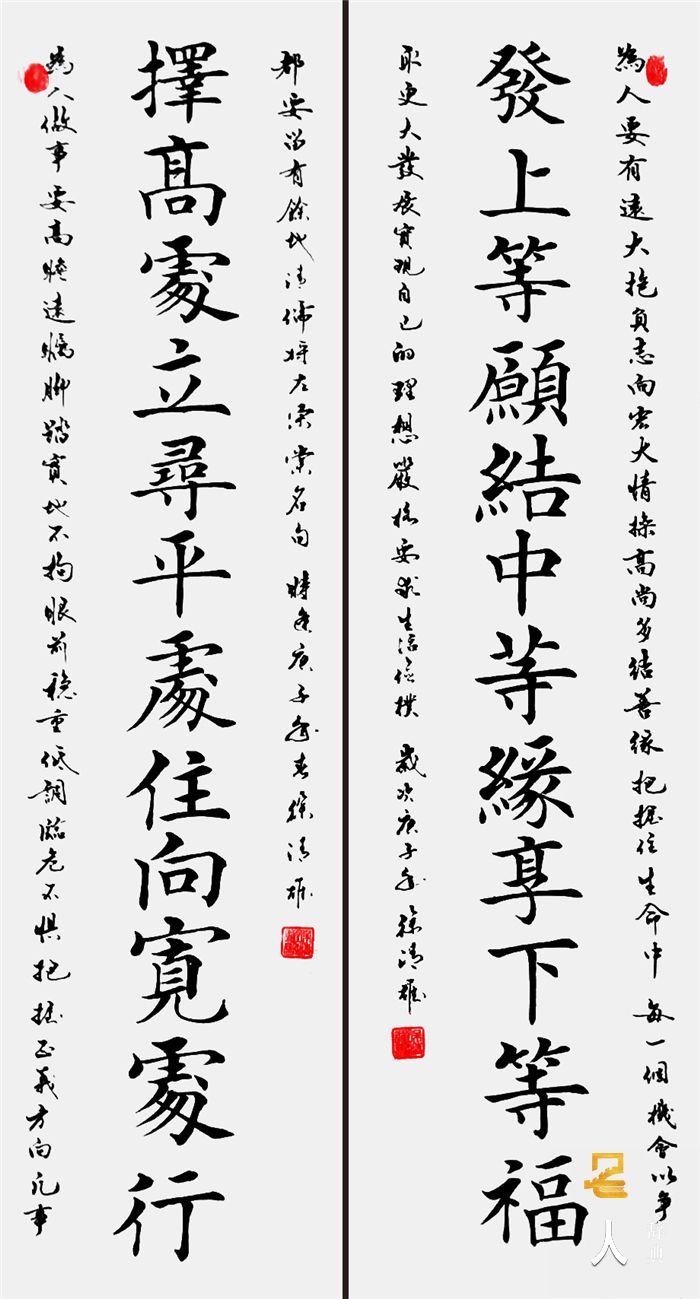 為人要有遠大抱負志向宏大情操高尚多結善緣把握住生命中每一個機會以爭
發上等願結中等緣享下等福
取更大發展實現自己的理想嚴格要求生活儉樸 歲次庚子年徐清雄
為人做事要高瞻遠矚腳踏實地不拘眼前穩重低調臨危不懼把握正義方向凡事
擇高處立尋平處住向寬處行
都要留有餘地清儒將左宗棠名句 時逢庚子年春徐清雄
人
辞典